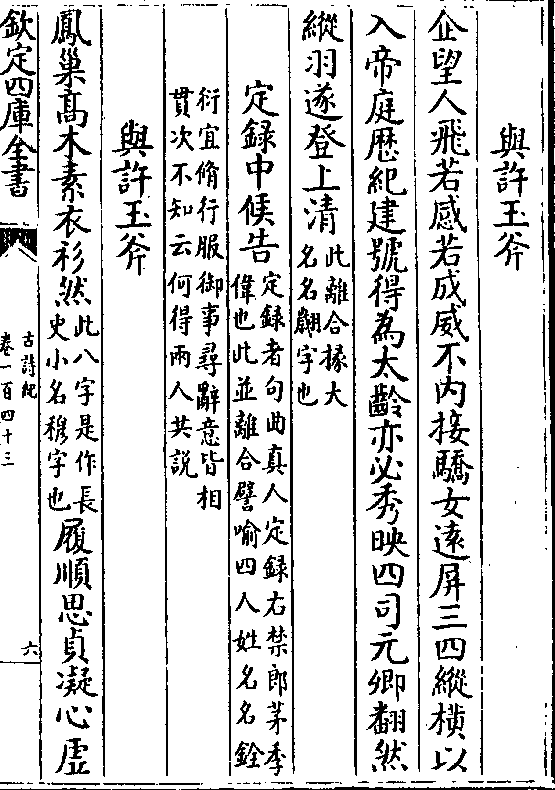 與許玉斧
企望人飛若感若成威不内接驕女遠屏三四縱橫以
入帝庭歴紀建號得為太齡亦必秀映四司元卿翻然
縱羽遂登上清
此離合掾大
名名翽字也
定録中候告
定録者句曲真人定録右禁郎茅季
偉也此並離合譬喻四人姓名名銓
衍宜脩行服御事尋辭意皆相
貫次不知云何得兩人共説
與許玉斧
鳳巢髙木素衣衫然
此八字是作長
史小名穆字也
履順思貞凝心虛
欽定四庫全書
古詩紀
卷一百四十三
六